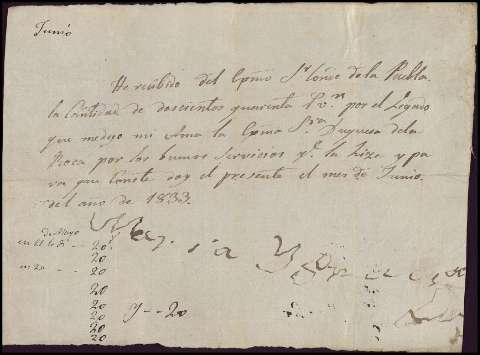 Junio
He recibido del Exmo Sr Conde de la Puebla
la Cantidad de doscientos quarenta Rvn. por el Legao
que medejo mi Ama la Exma Sra Duquesa dela
Roca por los buenos Servicios qe. la hize y pa
ra que Conste doy el presente el mes de Junio
del ano de 1833.
de Mayo
20
20
en 20 -- 20
20
20
20
20
20
y -- 20